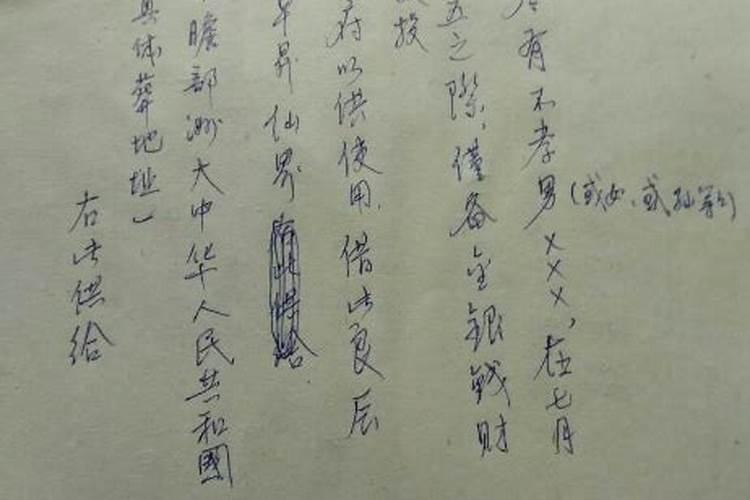 有不孝男(或女、或孙等)×××，在七月
五之际，仅备金銀钱财
投
府以供使用，借此良辰
早昇仙界
瞻部洲大中华人民共和國
具体葬地址)
右此供给